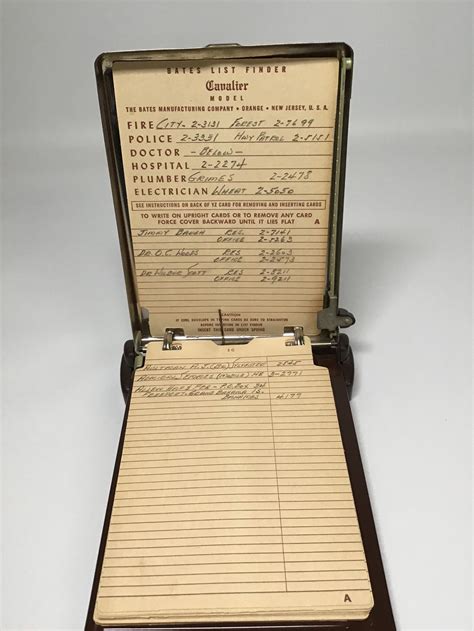 BATES LIST FINDER
Cavalier
MODEL
THE BATES MANUFACTURING COMPANY • ORANGE • NEW JERSEY, U. S. A.
FIRE CITY- 2-3131 FOREST 2-7699
POLICE 2-3331 HWY PATROL 2-5151
DOCTOR - BELOW -
HOSPITAL 2-2274
PLUMBER GRIMES 2-2478
ELECTRICIAN WHEAT 2-5050
SEE INSTRUCTIONS ON BACK OF YZ CARD FOR REMOVING AND INSERTING CARDS
TO WRITE ON UPRIGHT CARDS OR TO REMOVE ANY CARD
FORCE COVER BACKWARD UNTIL IT LIES FLAT A
JIMMY RES. 2-7141
OFFICE 2-5263
DR. O.C. WOODS RES. 2-2603
OFFICE 2-2573
DR WILBUR SCOTT RES 2-8211
OFFICE 2-9211
CAUTION
BEFORE INSERTION IN LIST FINDER
INSERT THIS CARD UNDER SPRING
2-2971
P.O. BOX
FREEPORT, GRAND BAHAMA IS.
BAHAMAS 4177
A